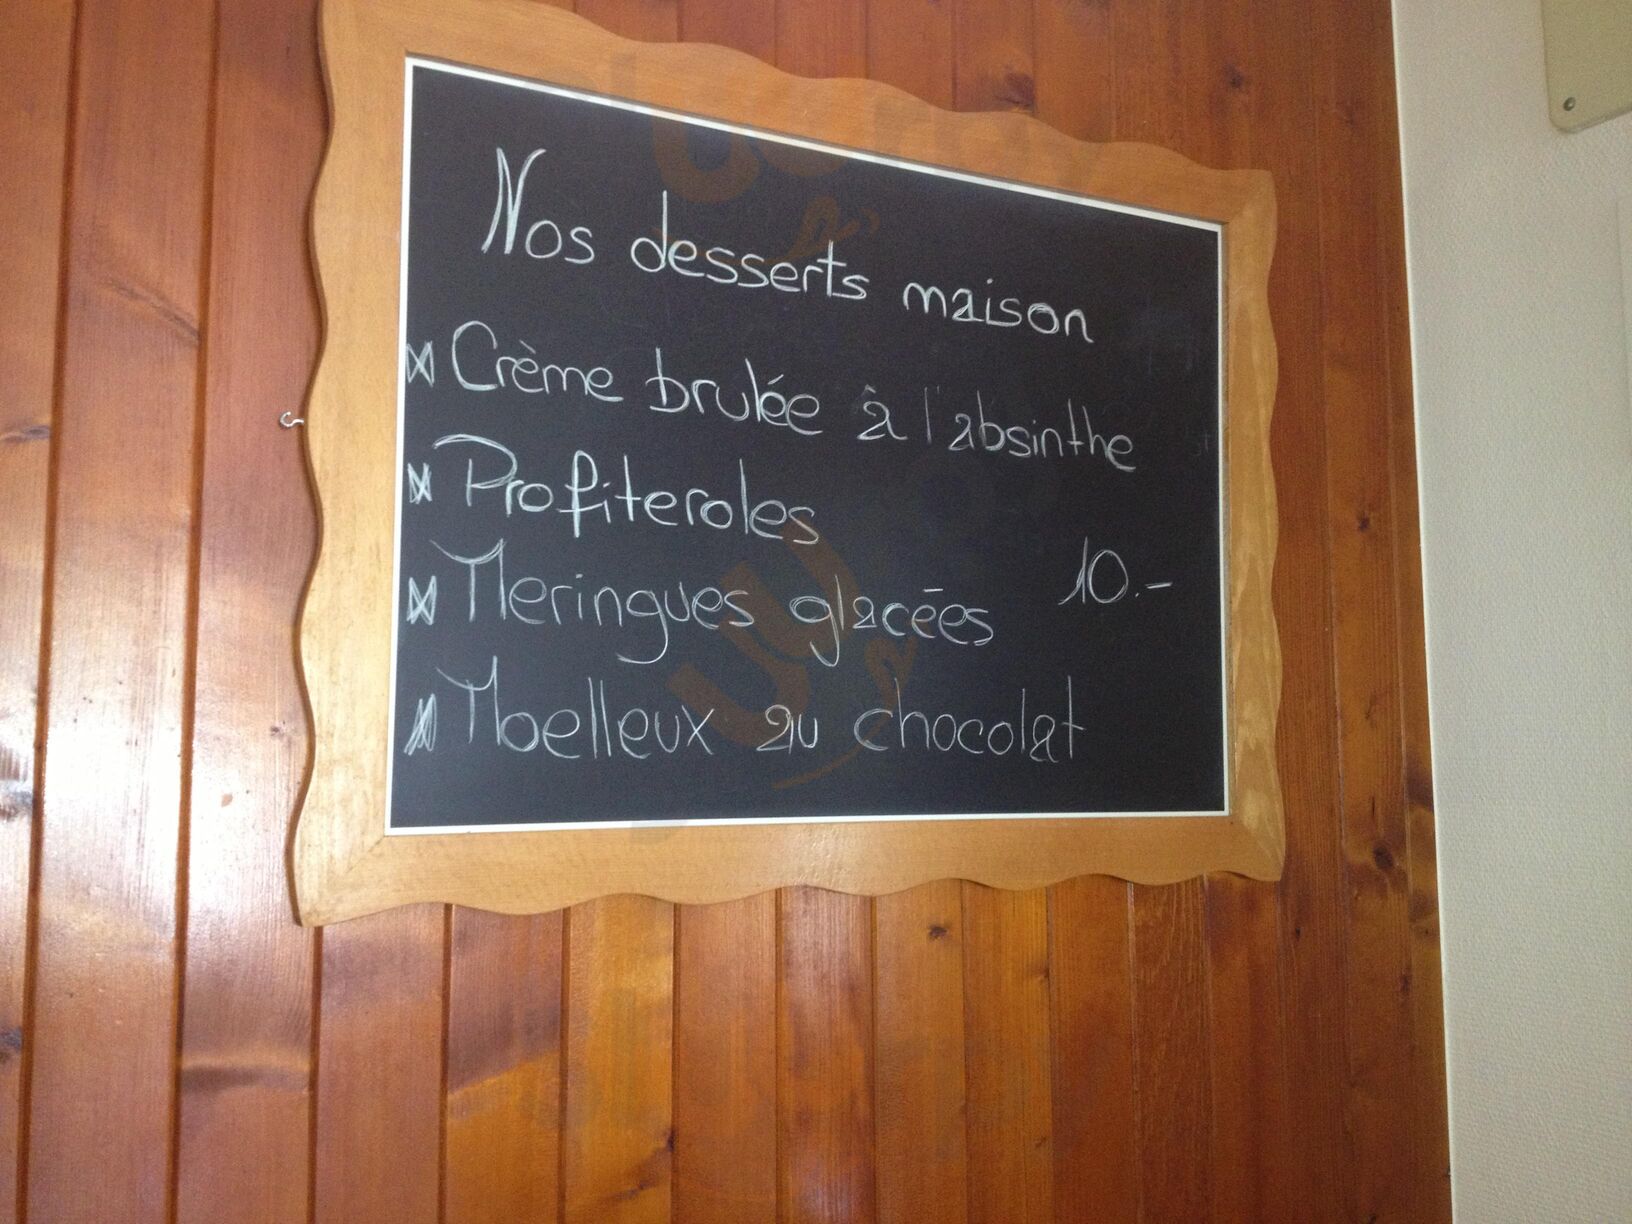 Nos desserts maison
Crème brulée à l'absinthe
Profiteroles
Meringues glacées 10.-
Moelleux au chocolat